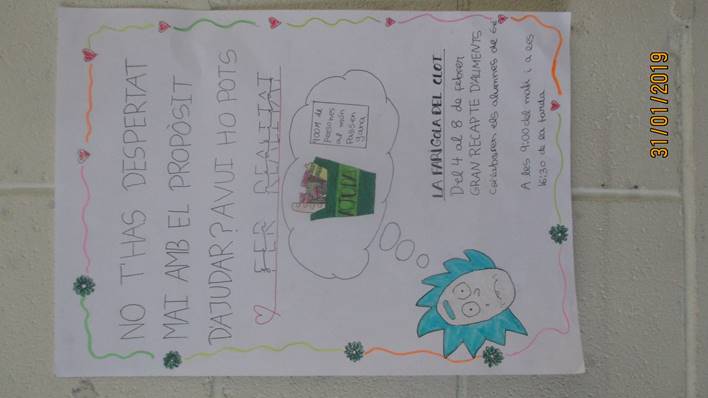 NO T'HAS DESPERTAT
MAI AMB EL PROPÒSIT
D'AJUDAR? AVUI HO POTS
FER REALITAT
400M de
persones
al món
passen
gana
AJUDA
LA FARIGOLA DEL CLOT
Del 4 al 8 de febrer
GRAN RECAPTE D'ALIMENTS
els alumnes de 6è
A les 9:00 del matí i a les
16:30 de la tarda
31/01/2019